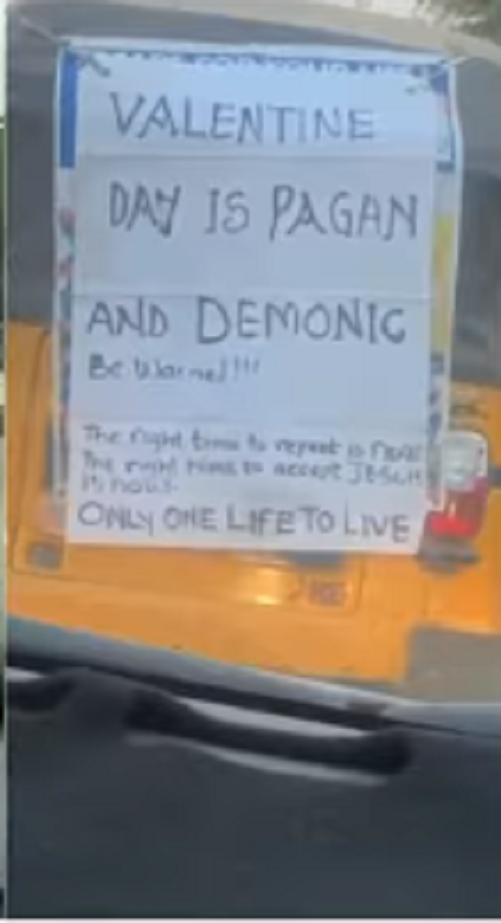 VALENTINE
DAY IS PAGAN
AND DEMONIC
Be Warned!!!
The right time to repent is now
The right time to accept JESUS
is now.
ONLY ONE LIFE TO LIVE